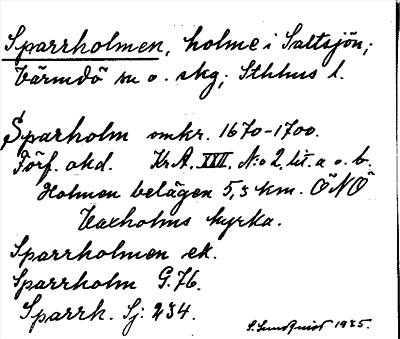 Sparrholmen, holme i Saltsjön;
Värmdö sn o. skg; Sthlms l.
Sparholm omkr. 1670-1700.
Förf. okd. Kr.A. XXII. N:o 2, lit. a o. b.
Holmen belägen 5,3 km. ÖNÖ
Vaxholms kyrka.
Sparrholmen ek.
Sparrholm G.76.
Sparrh. Sj: 234.
S. Sundqvist 1925.